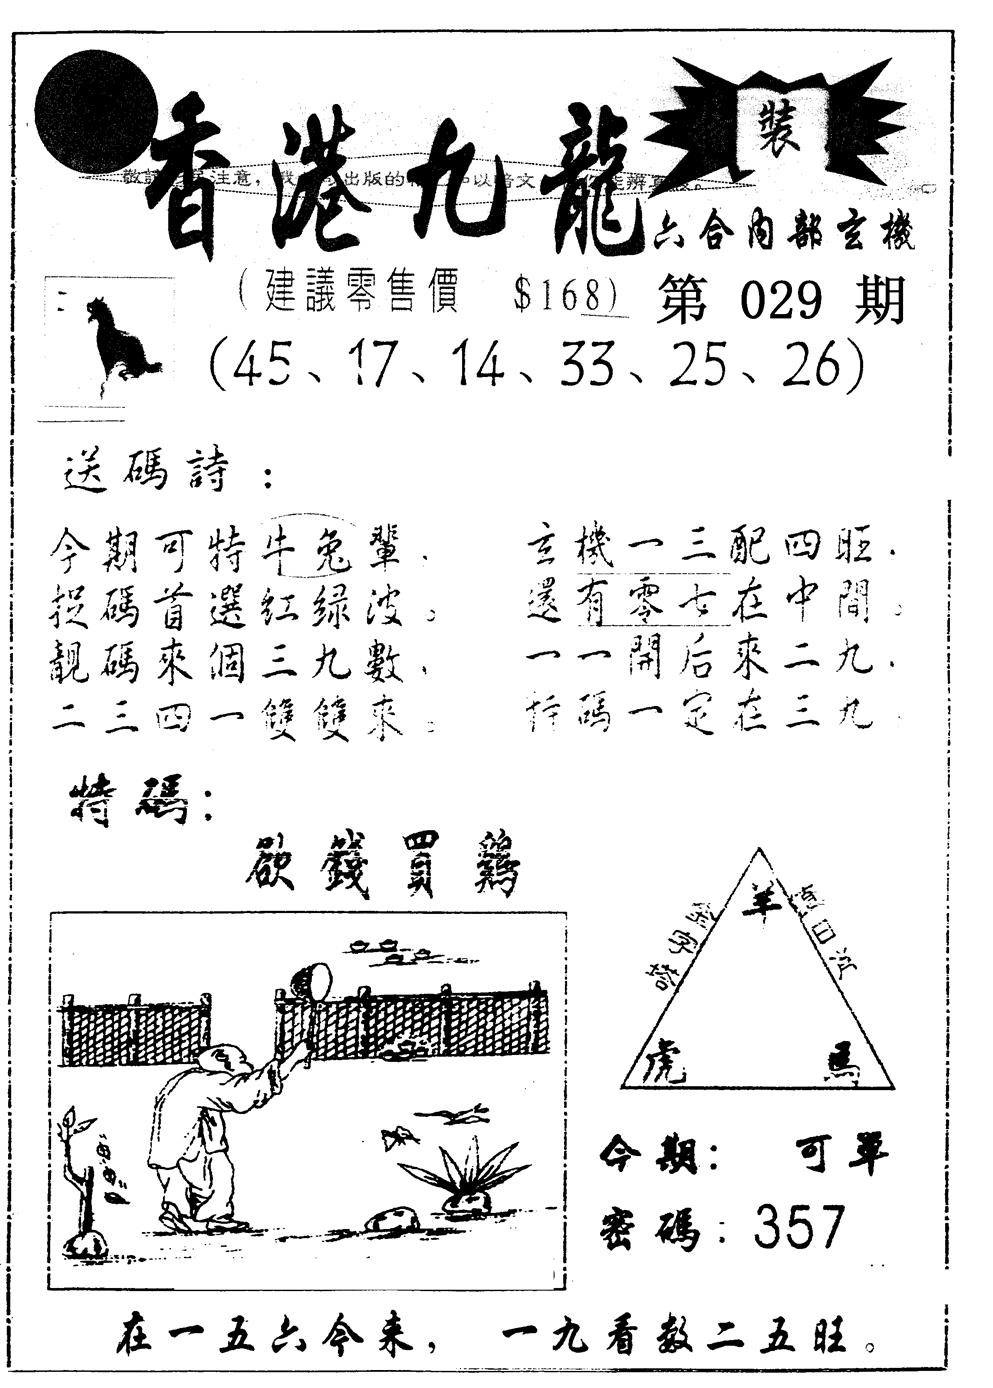 裝
香港九龍
敬請 注意，我 出版的 中以暗文 能辨真
六合內部玄機
(建議零售價 $168)
第 029 期
(45、17、14、33、25、26)
送碼詩：
今期可特牛兔輩．
捉碼首選紅绿波。
靚碼來個三九數，
二三四一雙雙來。
玄機一三配四旺．
還有零七在中間。
一一開后來二九．
特碼一定在三九．
特碼：
欲錢買鷄
金字塔
羊
虎
馬
今期： 可單
密碼：357
在一五六今来， 一九看数二五旺。